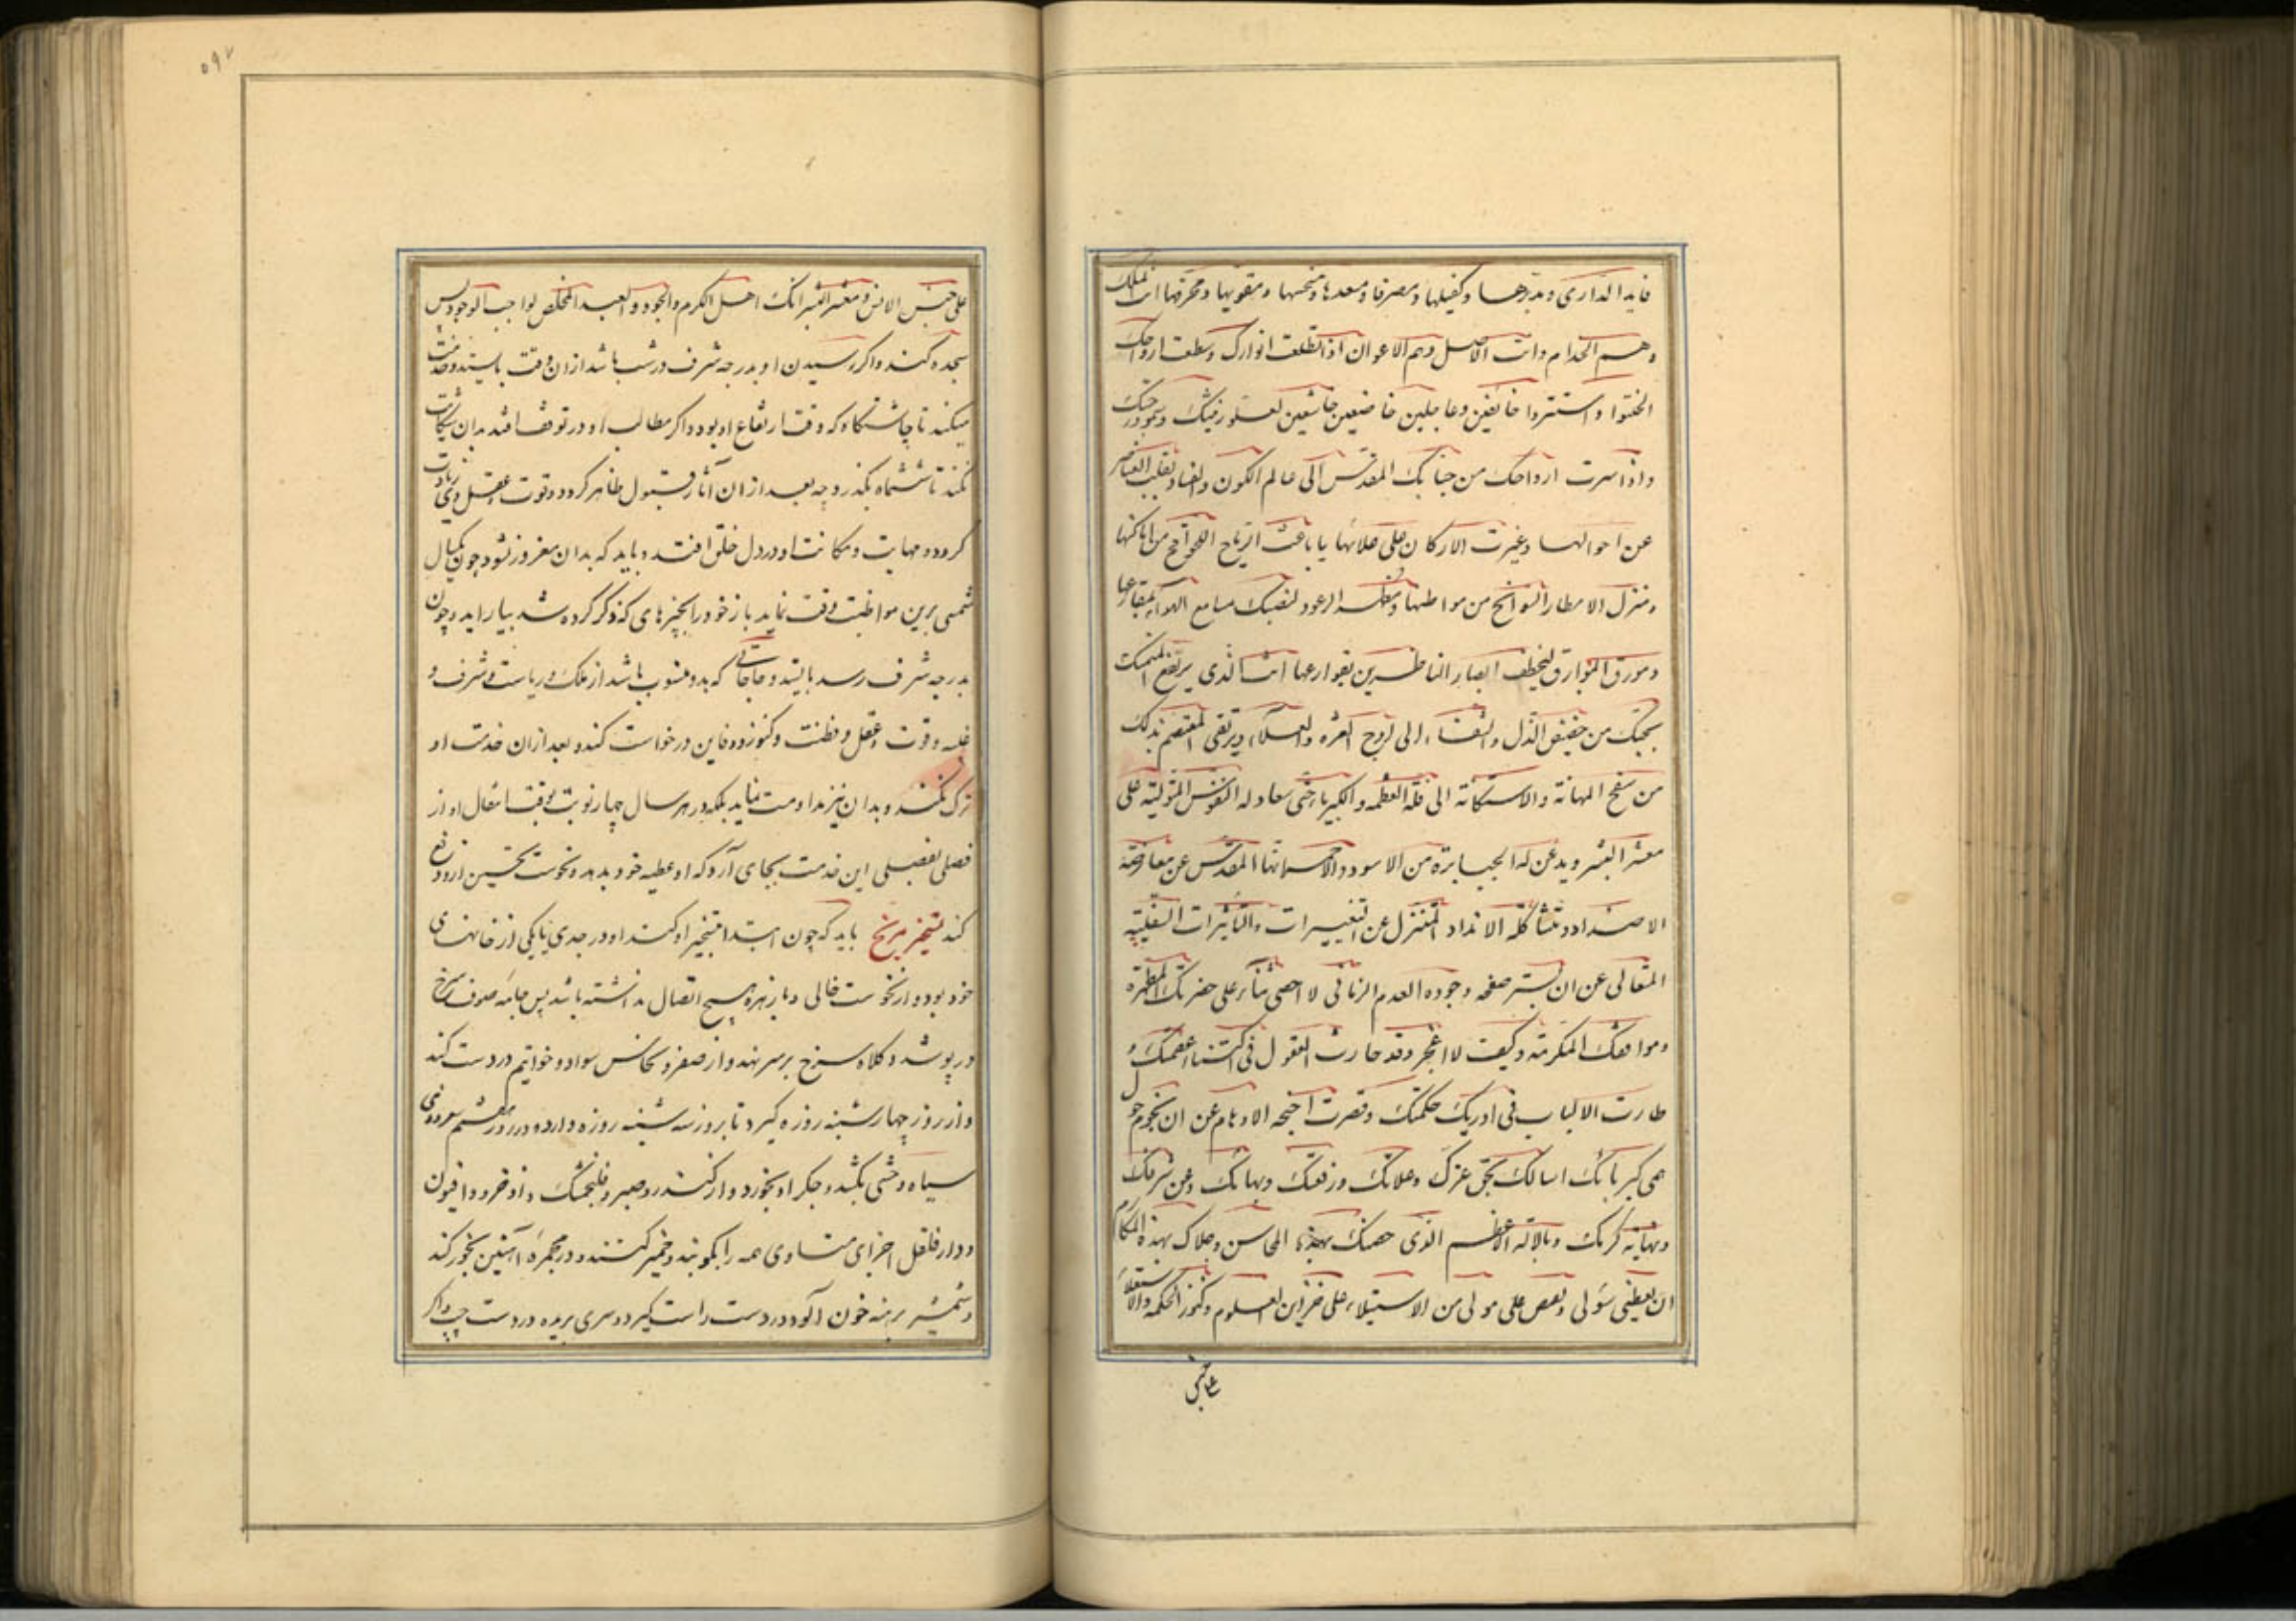 قاید الذاری و مدبرها و کفیلها و مصرفا و مسعدها و منحسها و مقویها و محرقها انت الملک
و هم الخدام و انت الاصل و هم الاعوان اذا تطلعت انوارک و سطعت ارواحک
اختفوا و استتروا خایفین و عاجلین خاضعین خاشعین لعلو رفیتک و سمو درجتک
و اذا سرت ارواحک من جنابک المقدس الی عالم الکون و الفساد تقلبت العناصر
عن احوالها و غیرت الارکان علی علاتها یا باعث الریاح اللواقح من اماکنها
و منزل الامطار السوانح من مواطنها و الرعود مسامع الهواء
و مورق البوارق لیخطف ابصار الناظرین بقوارعها انت الذی یرتفع المتمسک
بحبک من حضیض الذل و الشقاء الی اوج العزه و العلاء و یرتقی المعتصم بذلک
من سفح المهانة و الاستکانة الی قلة العظمه و الکبریاء حتی له النفوس المتولیة علی
معشر البشر و یذعن له الجبابرة من الاسود و الاحمر المقدس عن معارضة
الاضداد و مشاکلة الانداد المتنزل عن التغییرات و التأثیرات السفلیة
المتعالی عن ان یستر صفحه وجوده العدم الزمانی لا احصی ثناء علی حضرتک المطهرة
و مواقفک المکرمة و کیف لا اعجز و قد حارت العقول فی
طارت الالباب فی ادریک حکمتک و قصرت اجنحه الاوهام عن ان تحوم حول
حمی کبریائک اسالک بحق عزک و علائک و رفعتک و بهائک و عن شرفک
و نهایه کرمک و بالاله الاعظم الذی خصک بهذه المحاسن و جلاک بهذه المکارم
ان تعطینی سؤلی و علی مولی من الاستیلاء علی خزاین العلوم و کنوز الحکمه و الاستعلاء
علی جنس
علی جنس الانس و معشر البشر انک اهل الکرم و الجود و العبد المخلص لواجب الوجود پس
سجده کند و اگر رسیدن او بدرجه شرف در شب باشد از ان وقت بایستد و خدمت
میکند تا چاشتگاه که وقت ارتفاع او بود و اگر مطالب او در توقف افتد بدان شکایت
نکند تا ششماه بگذرد چه بعد از ان آثار قبول ظاهر گردد و قوت عقل وی زیادت
گردد و مهابت و مکانت او در دل خلق افتد و باید که بدان مغرور نشود چون یکسال
شمسی برین مواظبت وقت نماید باز خود را بچیزهای که ذکر کرده شد بیاراید و چون
بدرجه شرف رسد بایستد و حاجاتی که بدو منسوب باشد از ملک و ریاست و شرف و
غلبه و قوت و عقل و فطنت و کنوز و دفاین درخواست کند و بعد از ان خدمت او
ترک نکند و بدان نیز مداومت ننماید بلکه در هر سال چهار نوبت بوقت انتقال او از
فصلی بفصلی این خدمت بجای آرد که او عطیه خود بدهد و نحوست نحسین ازو دفع
کند تسخیر مریخ باید که چون ابتدا بتسخیر او کند او در جدی یا یکی از خانهای
خود بود و از نحوست خالی و با زهره هیچ اتصال نداشته باشد پس جامه صوف سرخ
در پوشد و کلاه سرخ بر سر نهد و از صفر و نحاس سوار و خواتیم در دست کند
و از روز چهارشنبه روزه گیرد تا بروز سه شنبه روزه دارد و در روز هشتم
سیاه وحشی بکشد و جگر او بخورد و از کندر و صبر و فلنجمشک و اذخر و افیون
و دارفلفل اجزای متساوی همه را بکوبند و خمیر کنند و در مجمره آهنین بخور کند
و شمشیر برهنه خون آلود در دست راست گیرد و سری بریده در دست چپ و اگر